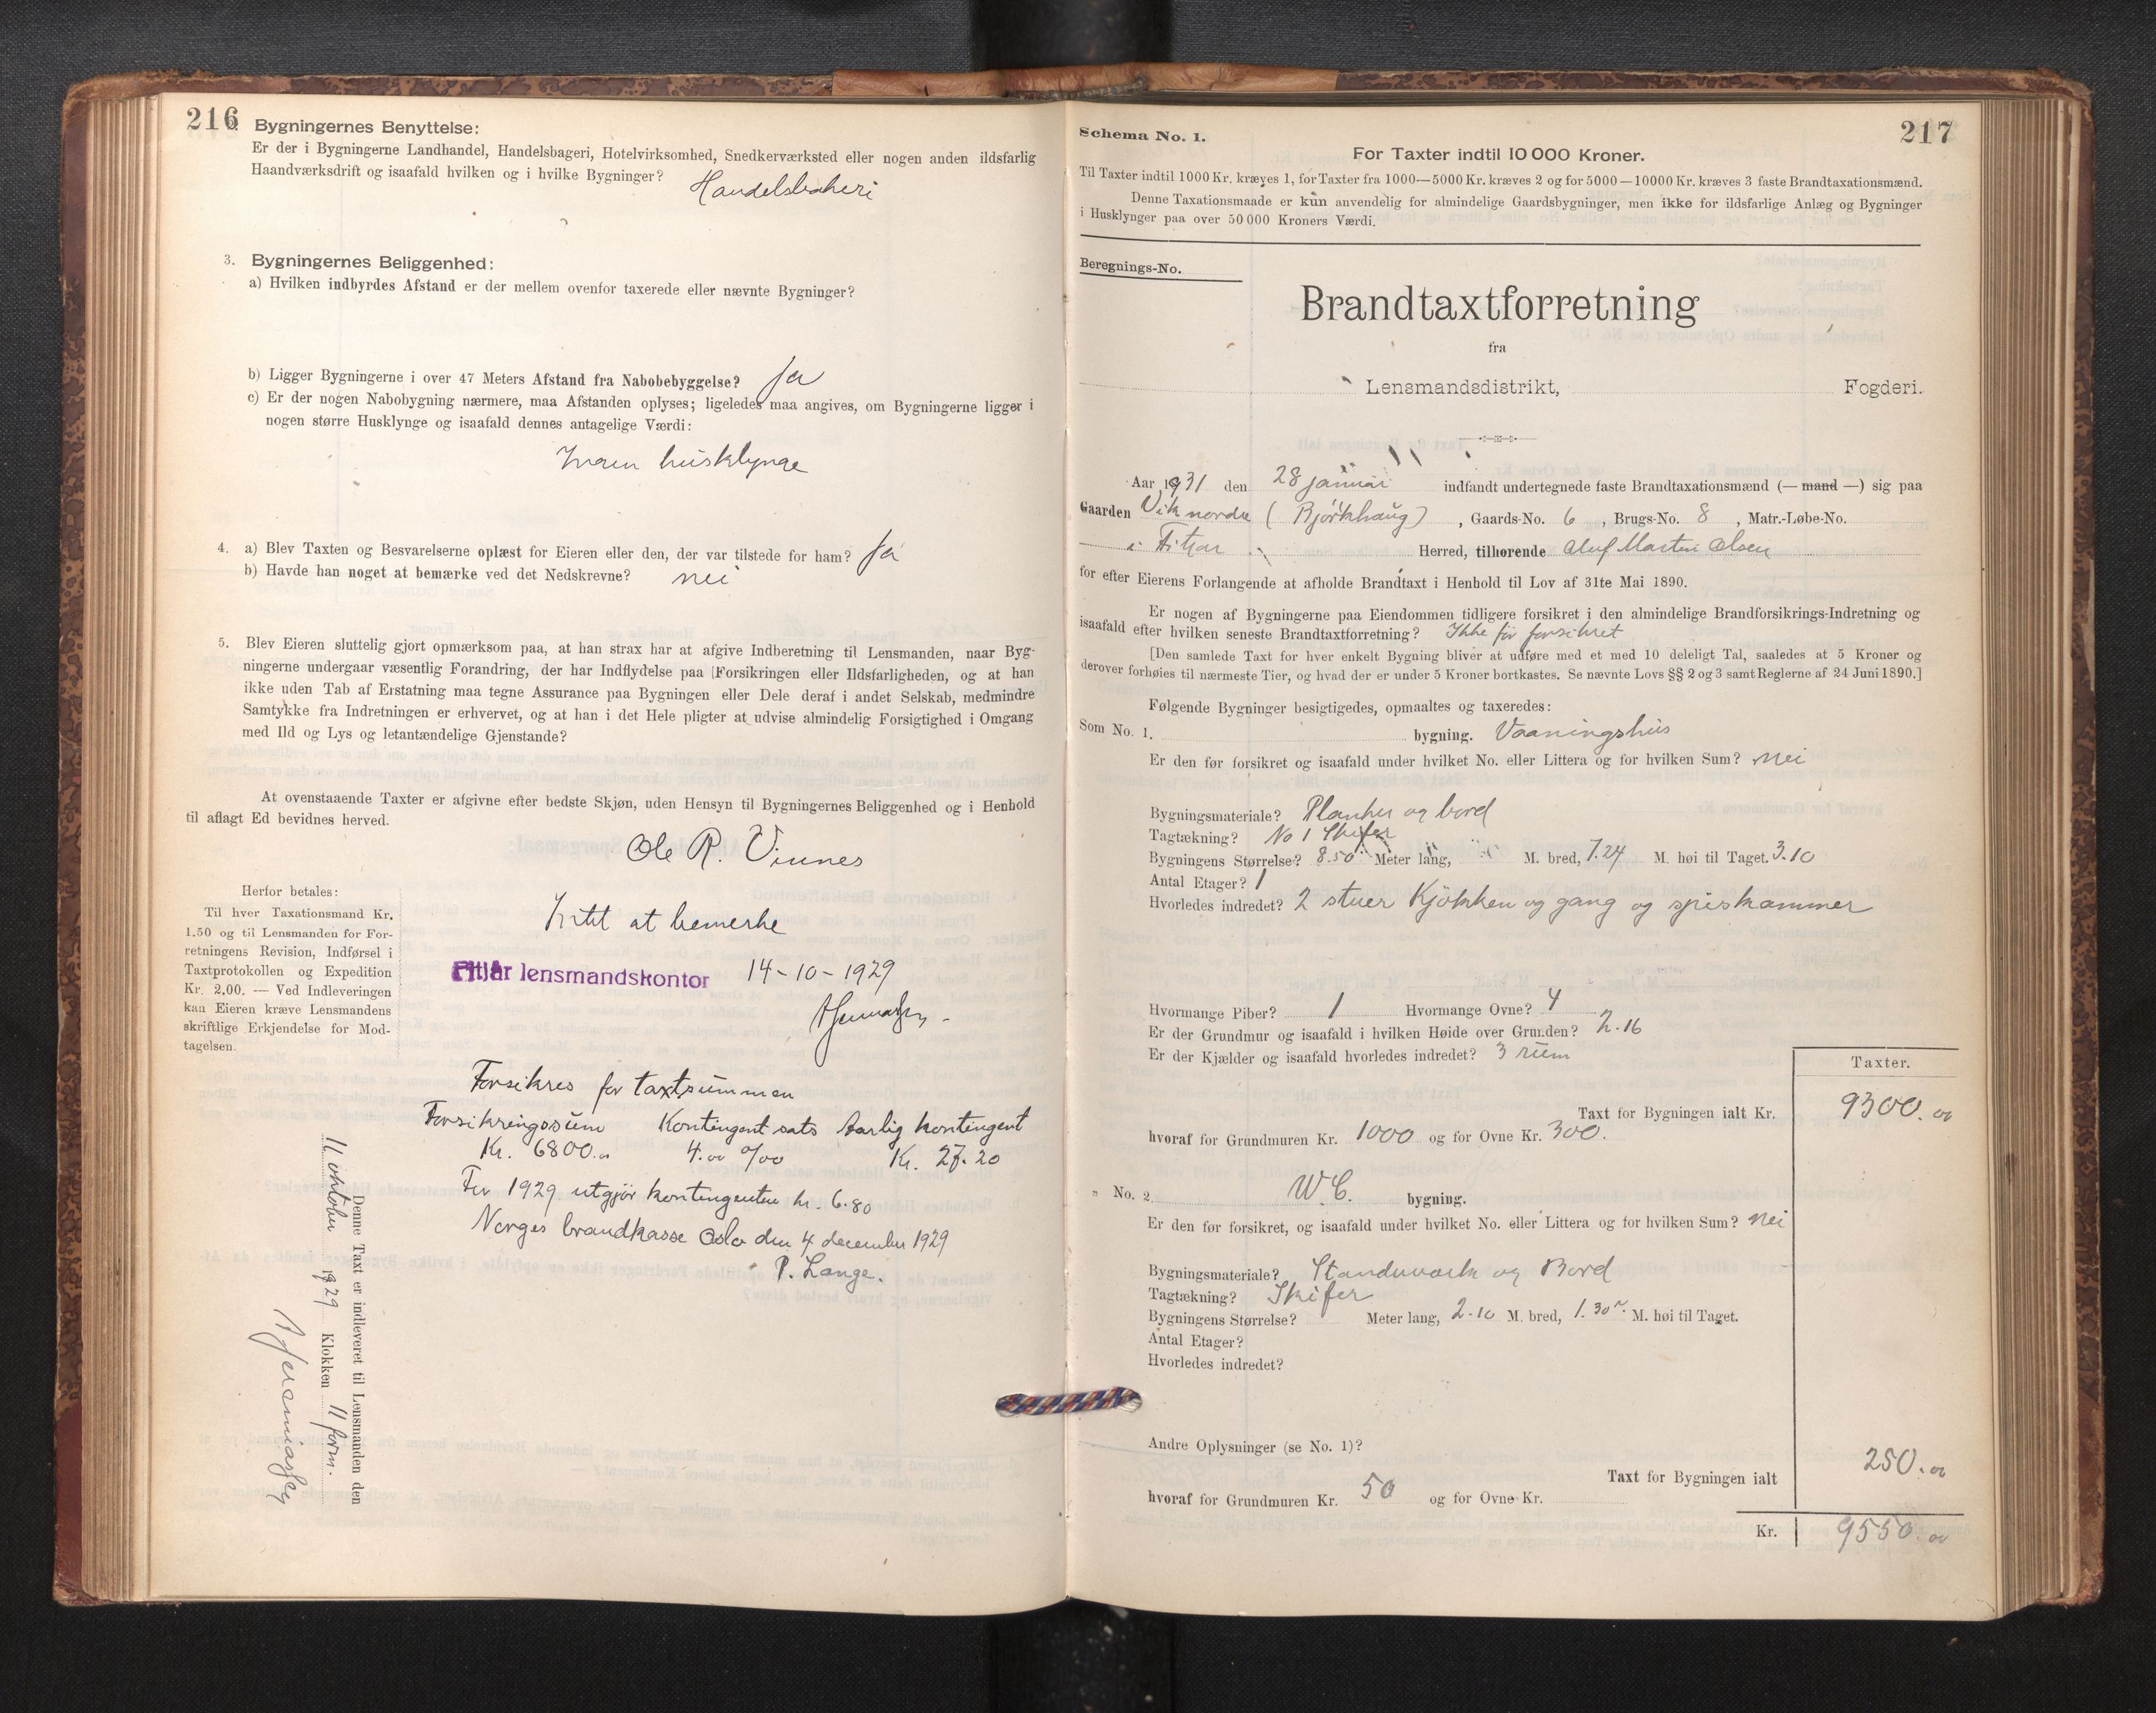 216
Bygningernes Benyttelse:
Er der i Bygningerne Landhandel, Handelsbageri, Hotelvirksomhed, Snedkerværksted eller nogen anden ildsfarlig
Haandværksdrift og isaafald hvilken og i hvilke Bygninger? Handelsbakeri
3. Bygningernes Beliggenhed:
a) Hvilken indbyrdes Afstand er der mellem ovenfor taxerede eller nævnte Bygninger?
b) Ligger Bygningerne i over 47 Meters Afstand fra Nabobebyggelse? Ja
c) Er der nogen Nabobygning nærmere, maa Afstanden oplyses; ligeledes maa angives, om Bygningerne ligger i
nogen større Husklynge og isaafald dennes antagelige Værdi:
Ingen husklynge
4. a) Blev Taxten og Besvarelserne oplæst for Eieren eller den, der var tilstede for ham? Ja
b) Havde han noget at bemærke ved det Nedskrevne? nei
5. Blev Eieren sluttelig gjort opmærksom paa, at han strax har at afgive Indberetning til Lensmanden, naar Byg-
ningerne undergaar væsentlig Forandring, der har Indflydelse paa Forsikringen eller Ildsfarligheden, og at han
ikke uden Tab af Erstatning maa tegne Assurance paa Bygningen eller Dele deraf i andet Selskab, medmindre
Samtykke fra Indretningen er erhvervet, og at han i det Hele pligter at udvise almindelig Forsigtighed i Omgang
med Ild og Lys og letantændelige Gjenstande?
At ovenstaaende Taxter er afgivne efter bedste Skjøn, uden Hensyn til Bygningernes Beliggenhed og i Henhold
til aflagt Ed bevidnes herved.
Ole R. Vinnes
Herfor betales:
Til hver Taxationsmand Kr.
1.50 og til Lensmanden for For-
retningens Revision, Indførsel i
Taxtprotokollen og Expedition
Kr. 2.00. — Ved Indleveringen
kan Eieren kræve Lensmandens
skriftlige Erkjendelse for Mod-
tagelsen.
Intet at bemerke
Fitjar lensmandskontor 14-10-1929
Forsikres for taxtsummen
Forsikringssum Kontingent sats Aarlig kontingent
Kr. 6800.00 4.00 0/00 Kr. 27.20
For 1929 utgjør kontingenten kr. 6.80
Norges brandkasse Oslo den 4 december 1929
P. Lange.
Denne Taxt er indleveret til Lensmanden den
11 oktober 1929 Klokken 11 form.
217
Schema No. 1.
For Taxter indtil 10 000 Kroner.
Til Taxter indtil 1000 Kr. kræves 1, for Taxter fra 1000—5000 Kr. kræves 2 og for 5000—10000 Kr. kræves 3 faste Brandtaxationsmænd.
Denne Taxationsmaade er kun anvendelig for almindelige Gaardsbygninger, men ikke for ildsfarlige Anlæg og Bygninger
i Husklynger paa over 50 000 Kroners Værdi.
Beregnings-No.
Brandtaxtforretning
fra
Lensmandsdistrikt, Fogderi.
Aar 1931 den 28 januar indfandt undertegnede faste Brandtaxationsmænd (— mand —) sig paa
Gaarden Vik nordre (Bjørkhaug), Gaards-No. 6, Brugs-No. 8, Matr.-Løbe-No.
i Fitjar Herred, tilhørende Oluf Martin Olsen
for efter Eierens Forlangende at afholde Brandtaxt i Henhold til Lov af 31te Mai 1890.
Er nogen af Bygningerne paa Eiendommen tidligere forsikret i den almindelige Brandforsikrings-Indretning og
isaafald efter hvilken seneste Brandtaxtforretning? Ikke før forsikret
[Den samlede Taxt for hver enkelt Bygning bliver at udføre med et med 10 deleligt Tal, saaledes at 5 Kroner og
derover forhøies til nærmeste Tier, og hvad der er under 5 Kroner bortkastes. Se nævnte Lovs §§ 2 og 3 samt Reglerne af 24 Juni 1890.]
Følgende Bygninger besigtigedes, opmaaltes og taxeredes:
Som No. 1. bygning. Vaaningshus
Er den før forsikret og isaafald under hvilket No. eller Littera og for hvilken Sum? nei
Bygningsmateriale? Planker og bord
Tagtækning? No 1 Skifer
Bygningens Størrelse? 8.50 Meter lang, M. bred, 7.24 M. høi til Taget. 3.10
Antal Etager? 1
Hvorledes indredet? 2 stuer Kjøkken og gang og spiskammer
Hvormange Piber? 1 Hvormange Ovne? 4
Er der Grundmur og isaafald i hvilken Høide over Grunden? 2.16
Er der Kjælder og isaafald hvorledes indredet? 3 rum
Taxter.
Taxt for Bygningen ialt Kr. 9300.00
hvoraf for Grundmuren Kr. 1000 og for Ovne Kr. 300.
" No. 2. W.C. bygning.
Er den før forsikret, og isaafald under hvilket No. eller Littera og for hvilken Sum? nei
Bygningsmateriale? Standverk og Bord
Tagtækning? Skifer
Bygningens Størrelse? Meter lang, 2.10 M. bred, 1.30 M. høi til Taget.
Antal Etager?
Hvorledes indredet?
Andre Oplysninger (se No. 1)?
Taxt for Bygningen ialt 250.00
hvoraf for Grundmuren Kr. 50 og for Ovne Kr.
Kr. 9550.00